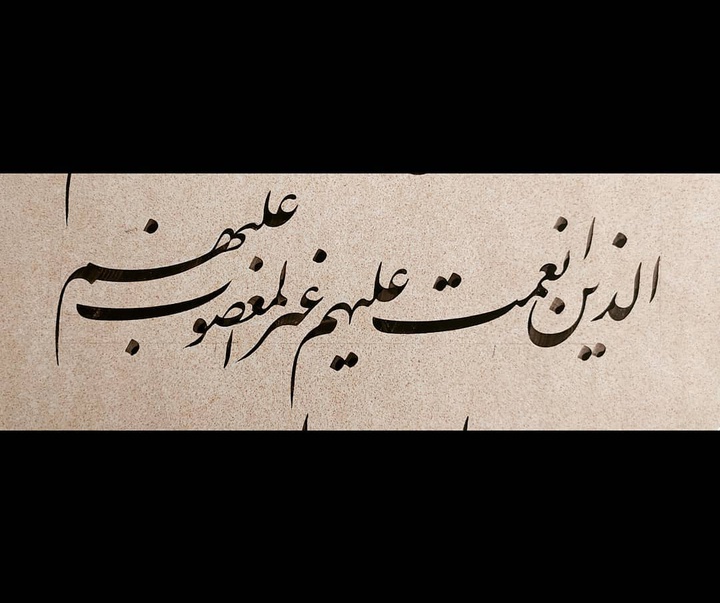 الذین انعمت علیهم غیر المغضوب علیهم